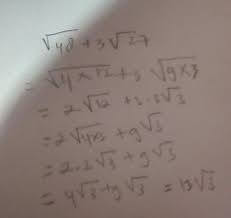 √48 + 3√27
= √4×12 + 3 √9×3
= 2√12 + 3·3√3
= 2√4×3 + 9√3
= 2·2√3 + 9√3
= 4√3 + 9√3 = 13√3